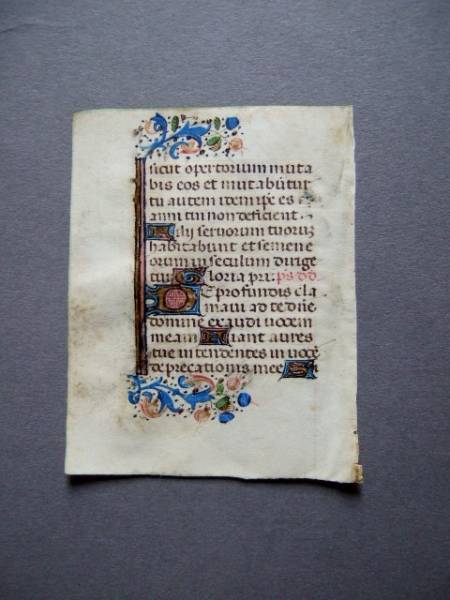 sicut opertorium muta
bis eos et mutabūtur
tu autem idem ipē es ⁊
anni tui non deficient.
Filii seruorum tuorū
habitabunt et semen e
orum in seculum dirige
tur Gloria pri: ps. dd.
De profundis cla
maui ad te dñe
domine exaudi uocem
meam Fiant aures
tue intendentes in uocē
deprecationis mee Si